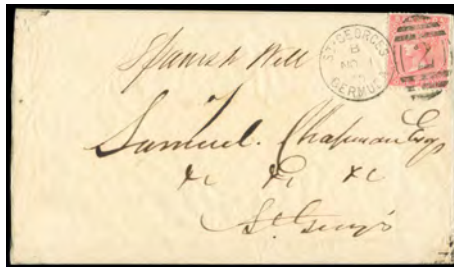 Spanish Well
ST. GEORGES
B
NO 1
BERMUDA
2
Samuel. Chapman Esqr
&c &c &c
St. George's